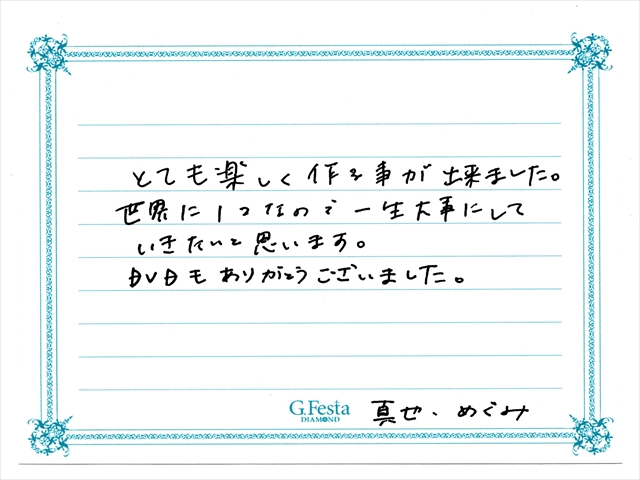 とても楽しく作る事が出来ました。
世界に1つなので一生大事にして
いきたいと思います。
DVDもありがとうございました。
G.Festa
DIAMOND
真也、めぐみ